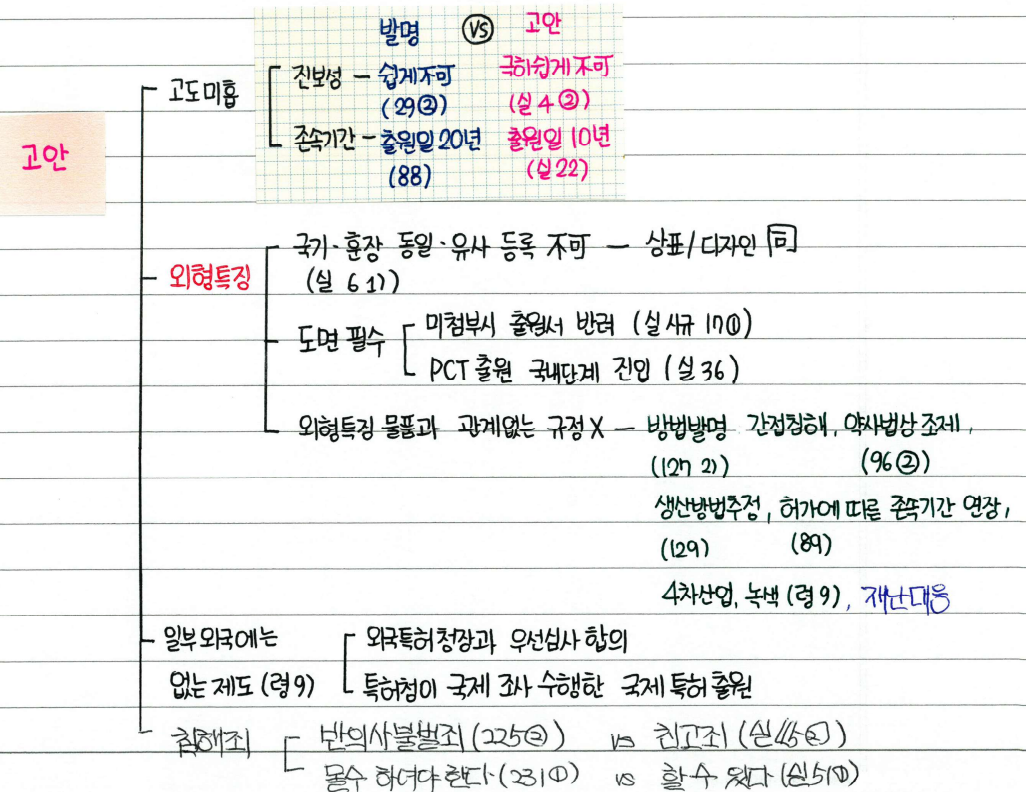 발명 VS 고안
고도미흡
진보성 - 쉽게不可 극히쉽게不可
(29②) (실 4②)
존속기간 - 출원일 20년 출원일 10년
(88) (실 22)
고안
외형특징
국기·훈장 동일·유사 등록 不可 - 상표/디자인 同
(실 6 1))
도면 필수
미첨부시 출원서 반려 (실 시규 17①)
PCT 출원 국내단계 진입 (실 36)
외형특징 물품과 관계없는 규정 X - 방법발명 간접침해, 약사법상 조제,
(127 2)) (96②)
생산방법추정, 허가에 따른 존속기간 연장,
(129) (89)
4차산업, 녹색 (령 9), 재난대응
일부 외국에는
없는 제도 (령 9)
외국특허청장과 우선심사 합의
특허청이 국제 조사 수행한 국제 특허 출원
침해죄
반의사불벌죄 (225②) vs 친고죄 (실45②)
몰수 하여야 한다 (231①) vs 할 수 있다 (실51①)